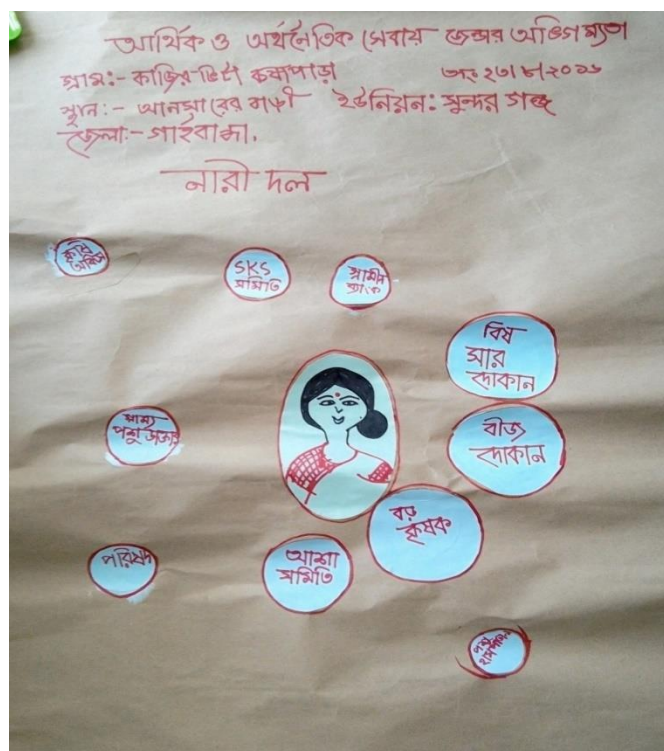 আর্থিক ও অর্থনৈতিক সেবায় জেন্ডার অভিগম্যতা
গ্রাম:- কাজির ভিটা
তাং ২৩।৮।২০১৬
স্থান:- আনসারের বাড়ী ইউনিয়ন: সুন্দর গঞ্জ
জেলা:- গাইবান্ধা.
নারী দল
কৃষি
অফিস
SKS
সমিতি
গ্রামীন
ব্যাংক
বিষ
সার
দোকান
গ্রাম্য
পশু ডাক্তার
বীজ
দোকান
বড়
কৃষক
পরিষদ
আশা
সমিতি
পশু
হাসপাতাল